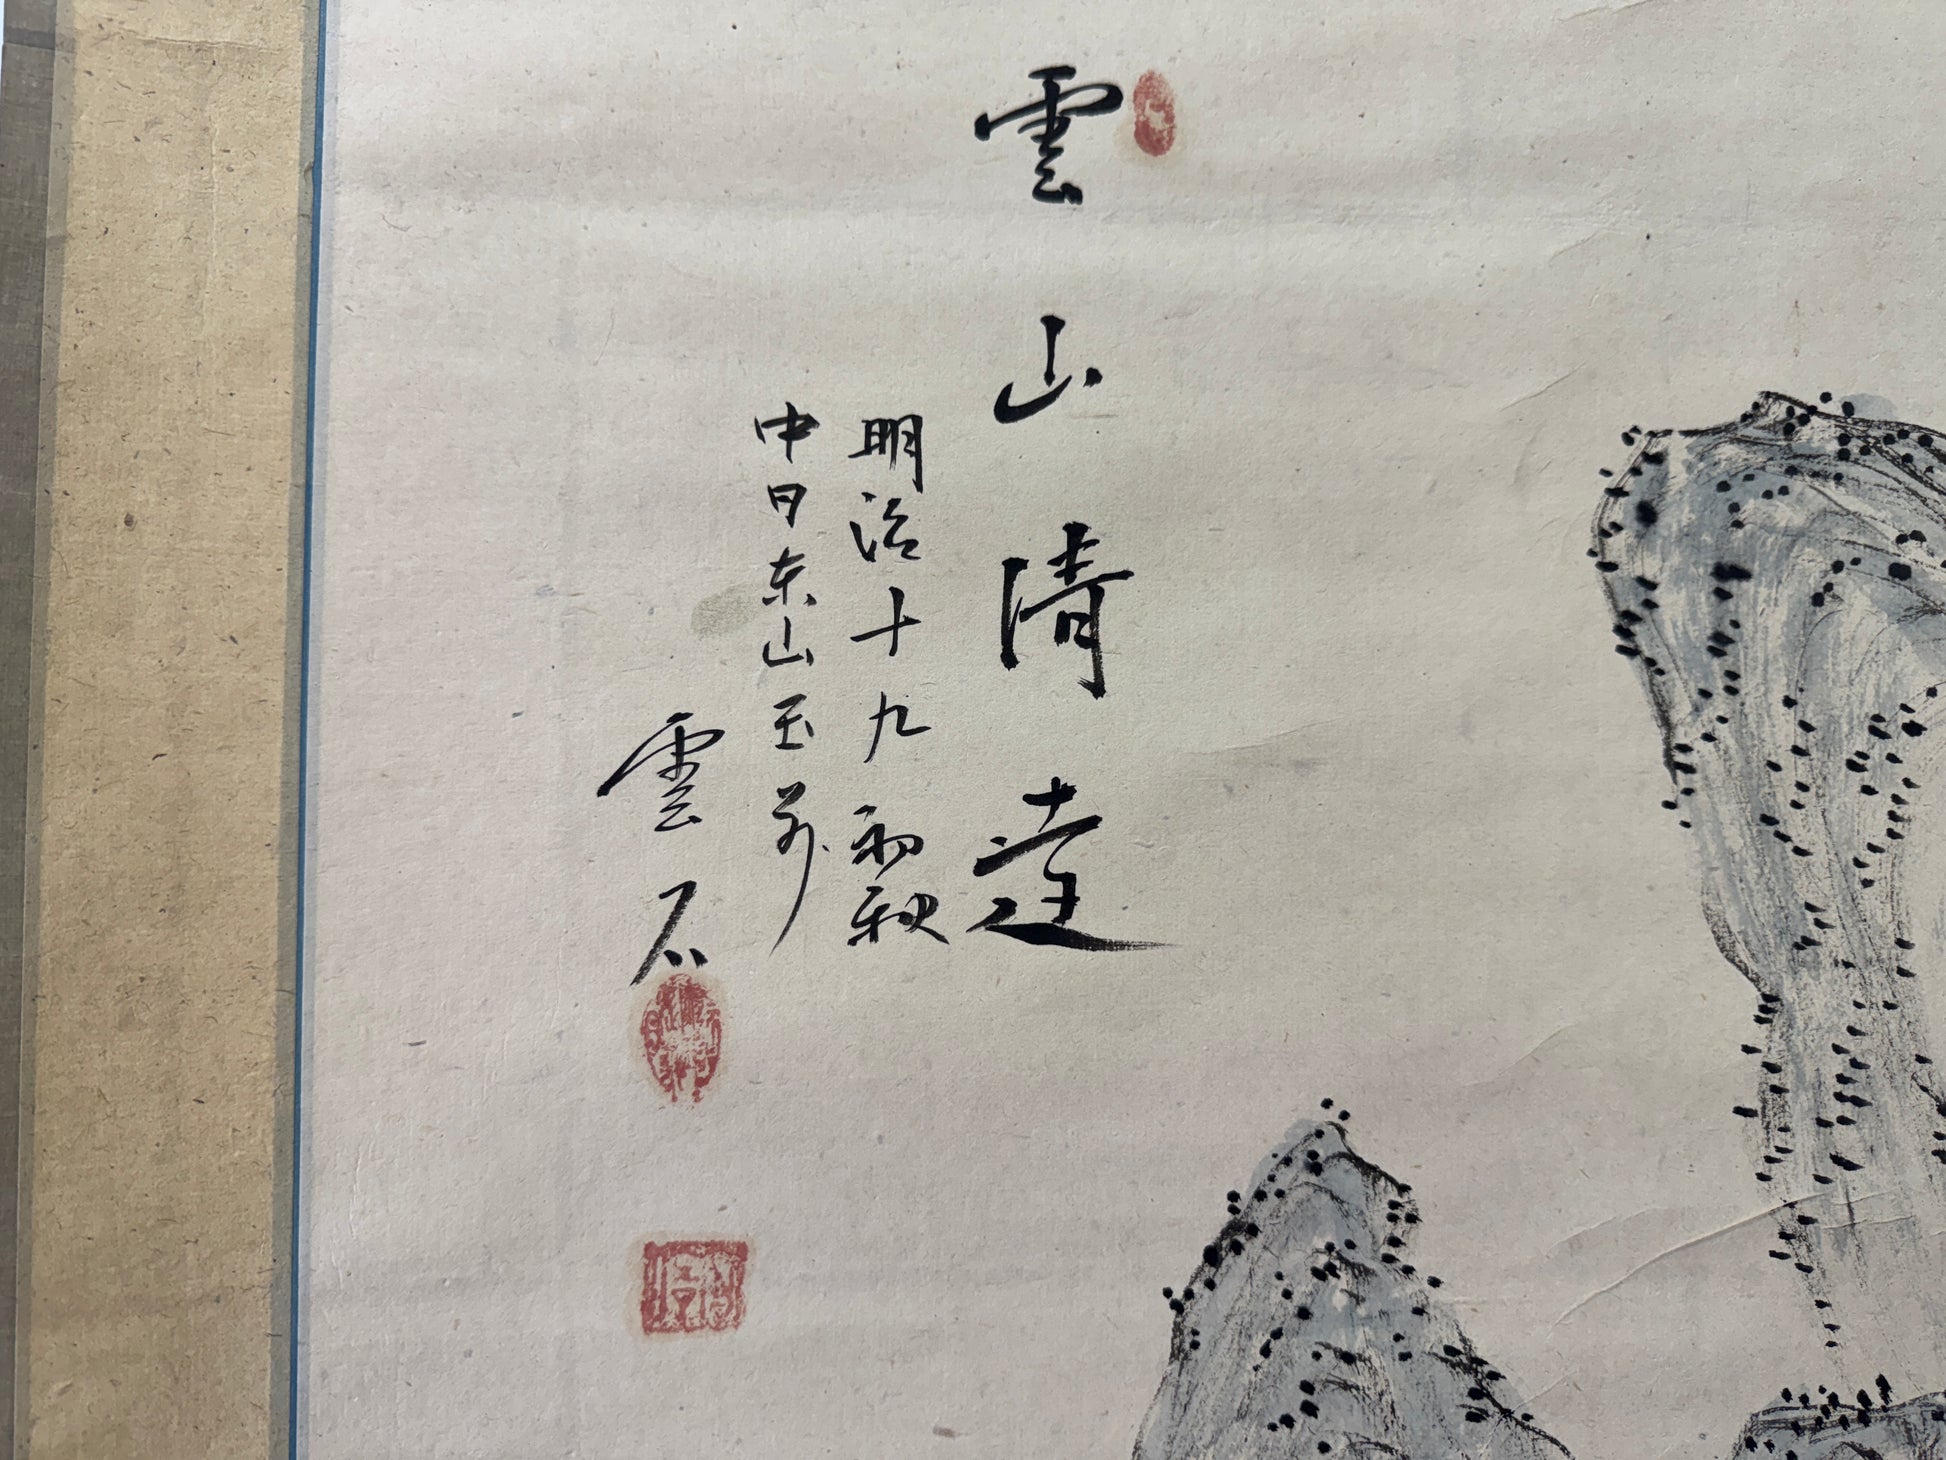 雲山清遠
明治十九初秋
中日东山玉
雲石